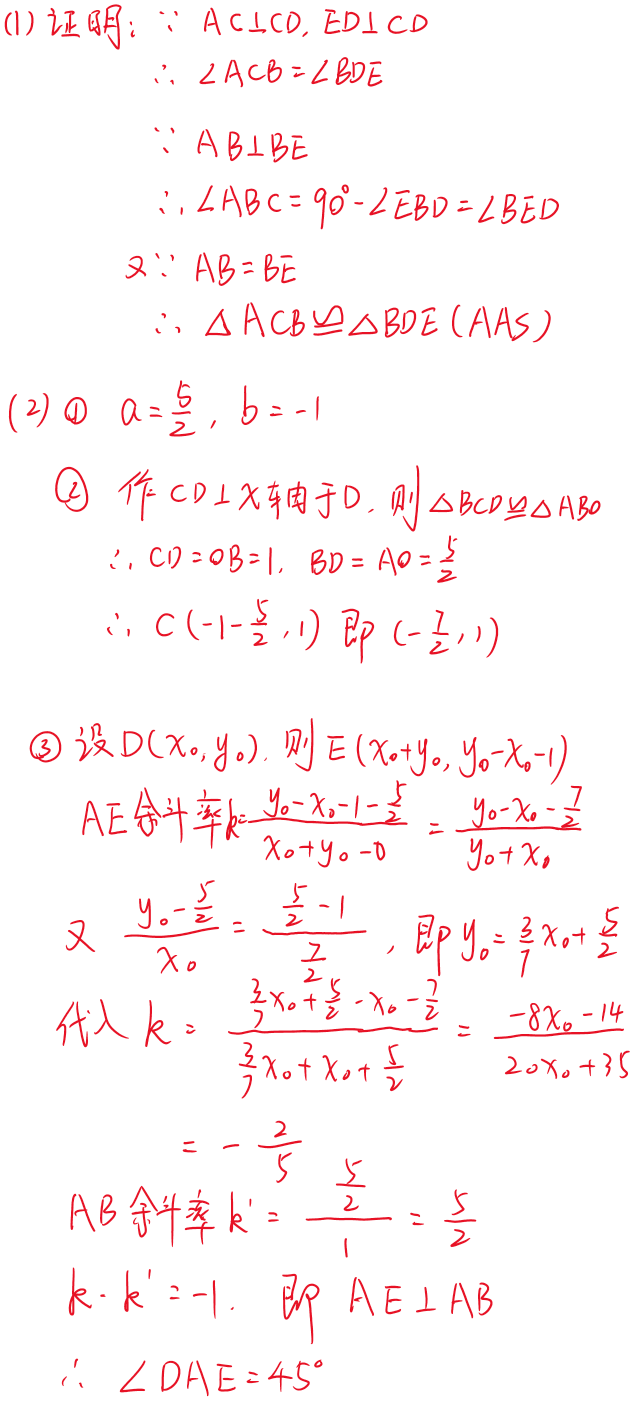 (1) 证明: ∵ AC⊥CD, ED⊥CD
∴ ∠ACB=∠BDE
∵ AB⊥BE
∴ ∠ABC=90°-∠EBD=∠BED
又∵ AB=BE
∴ △ACB≌△BDE(AAS)
(2) ① a=5/2, b=-1
② 作CD⊥X轴于D. 则△BCD≌△ABO
∴ CD=OB=1, BD=AO=5/2
∴ C(-1-5/2, 1) 即(-7/2, 1)
③ 设D(x₀,y₀), 则E(x₀+y₀, y₀-x₀-1)
AE斜率k=(y₀-x₀-1-5/2)/(x₀+y₀-0) = (y₀-x₀-7/2)/(y₀+x₀)
又 (y₀-5/2)/x₀ = (5/2-1)/(7/2), 即y₀=3/7x₀+5/2
代入k = (3/7x₀+5/2-x₀-7/2)/(3/7x₀+x₀+5/2) = (-8x₀-14)/(20x₀+35)
= -2/5
AB斜率k'=(5/2)/1=5/2
k·k'=-1. 即AE⊥AB
∴ ∠DAE=45°